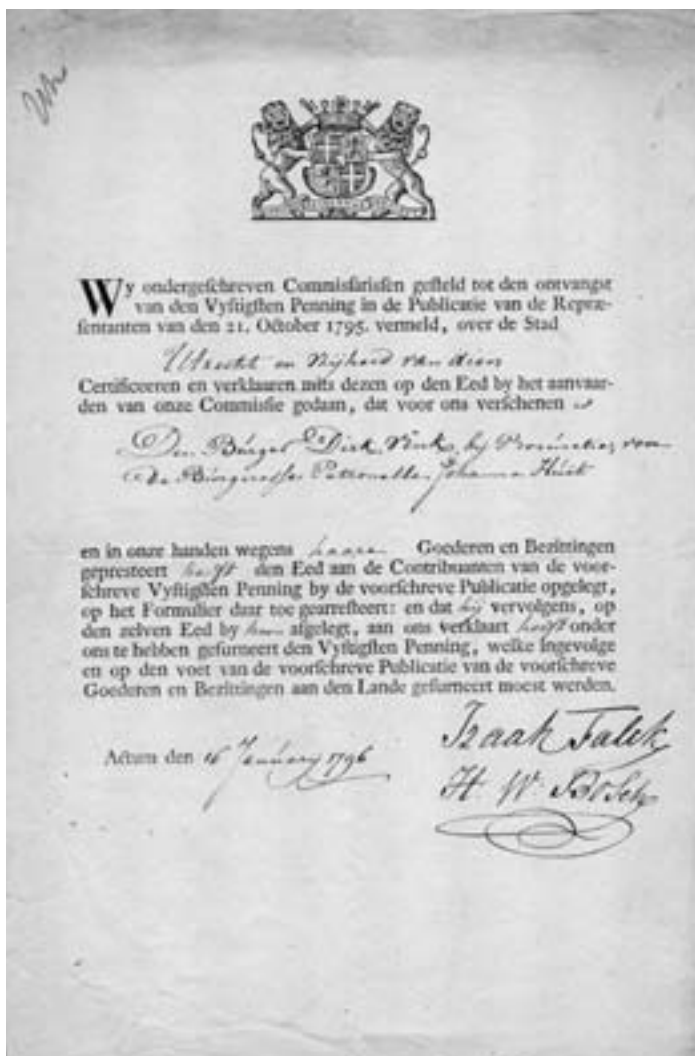 Wy ondergeschreven Commissarissen gesteld tot den ontvangst
van den Vyftigsten Penning in de Publicatie van de Repræ-
sentanten van den 21. October 1795. vermeld, over de Stad
Utrecht en Vrijheid van dien
Certificeeren en verklaaren mits dezen op den Eed by het aanvaar-
den van onze Commissie gedaan, dat voor ons verschenen is
Den Burger Dirk Vink, bij Procuratie van
De Burgeresse Petronella Johanna
en in onze handen wegens haare Goederen en Bezittingen
gepresteert heeft den Eed aan de Contribuanten van de voor-
schreve Vyftigsten Penning by de voorschreve Publicatie opgelegt,
op het Formulier daar toe gearresteert: en dat hij vervolgens, op
den zelven Eed by hem afgelegt, aan ons verklaart heeft onder
ons te hebben gefurneert den Vyftigsten Penning, welke ingevolge
en op den voet van de voorschreve Publicatie van de voorschreve
Goederen en Bezittingen aan den Lande gefurneert moest werden.
Actum den 16 January 1796
Izaak Falck
H. W. Bosch